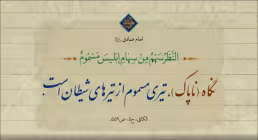 امام صادق علیه السلام
النَّظَرُ سَهْمٌ مِنْ سِهَامِ إِبْلِیسَ مَسْمُومٌ
نگاه (ناپاک)، تیری مسموم از تیرهای شیطان است.
الکافی، ج۵، ص۵۵۹